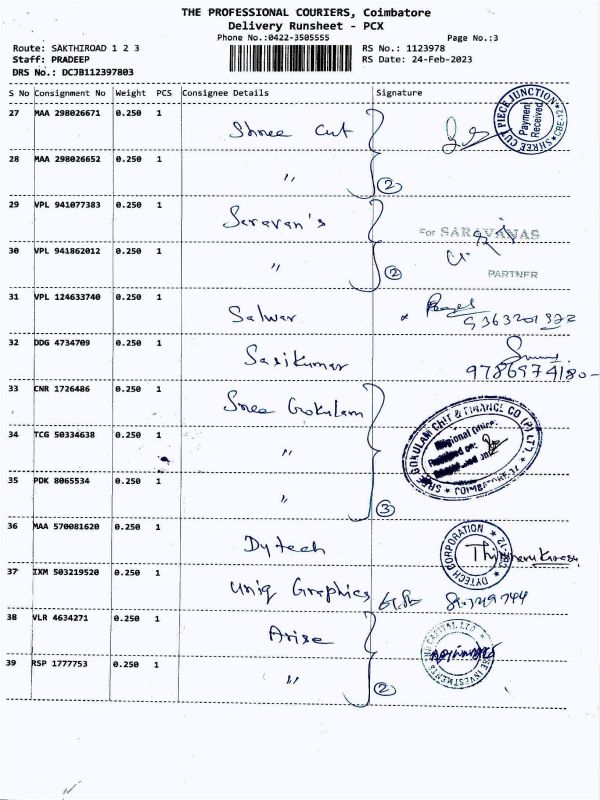 THE PROFESSIONAL COURIERS, Coimbatore
Delivery Runsheet - PCX
Phone No.:0422-3505555
Page No.:3
Route: SAKTHIROAD 1 2 3
RS No.: 1123978
Staff: PRADEEP
RS Date: 24-Feb-2023
DRS No.: DCJB112397803
S No Consignment No Weight PCS Consignee Details Signature
27 MAA 298026671 0.250 1 Shree Cut
SHREE CUT PIECE JUNCTION
Payment Received
28 MAA 298026652 0.250 1 〃 2
29 VPL 941077383 0.250 1 Saravan's
For SARAVANAS
30 VPL 941862012 0.250 1 〃 2
PARTNER
31 VPL 124633740 0.250 1 Salwar
32 DDG 4734709 0.250 1 Sasikumar
33 CNR 1726486 0.250 1 Sree Gokulam
SREE GOKULAM CHIT & FINANCE CO (P) LTD.
34 TCG 50334638 0.250 1 〃
35 PDK 8065534 0.250 1 〃 3
36 MAA 570081620 0.250 1 Dytech
DYTECH CORPORATION
37 IXM 503219520 0.250 1 Uniq Graphics
38 VLR 4634271 0.250 1 Arise
39 RSP 1777753 0.250 1 〃 2